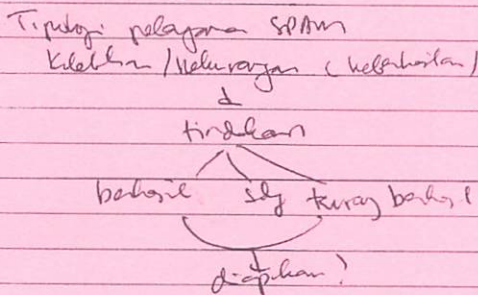 Tipologi pelayanan SPAM
Kelebihan / kekurangan (keberhasilan)
↓
tindakan
berhasil sdg kurang berhasil
diapikan?